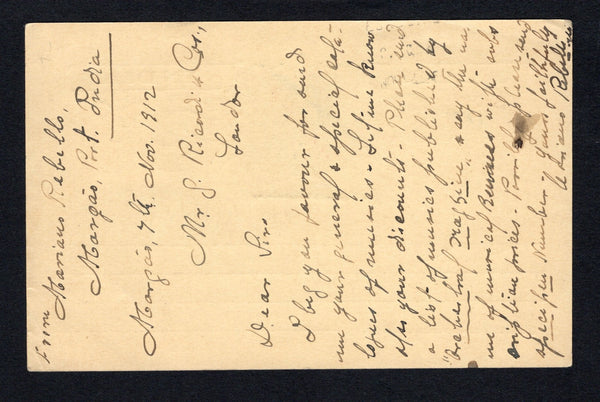 From
Mariano Rebello,
Margão, Port. India
Margão, 7th Nov. 1912
Mr. G. Ricordi & Co.,
London
Dear Sirs
I beg you favour for send
me your general & special cata-
logues of musics. Let me know
also your discounts. Please send
a list of musics published by
"Orchestral
of musical Reviews with subs
cription prices. please send
specimen Number. Yours faithfully
Mariano Rebello